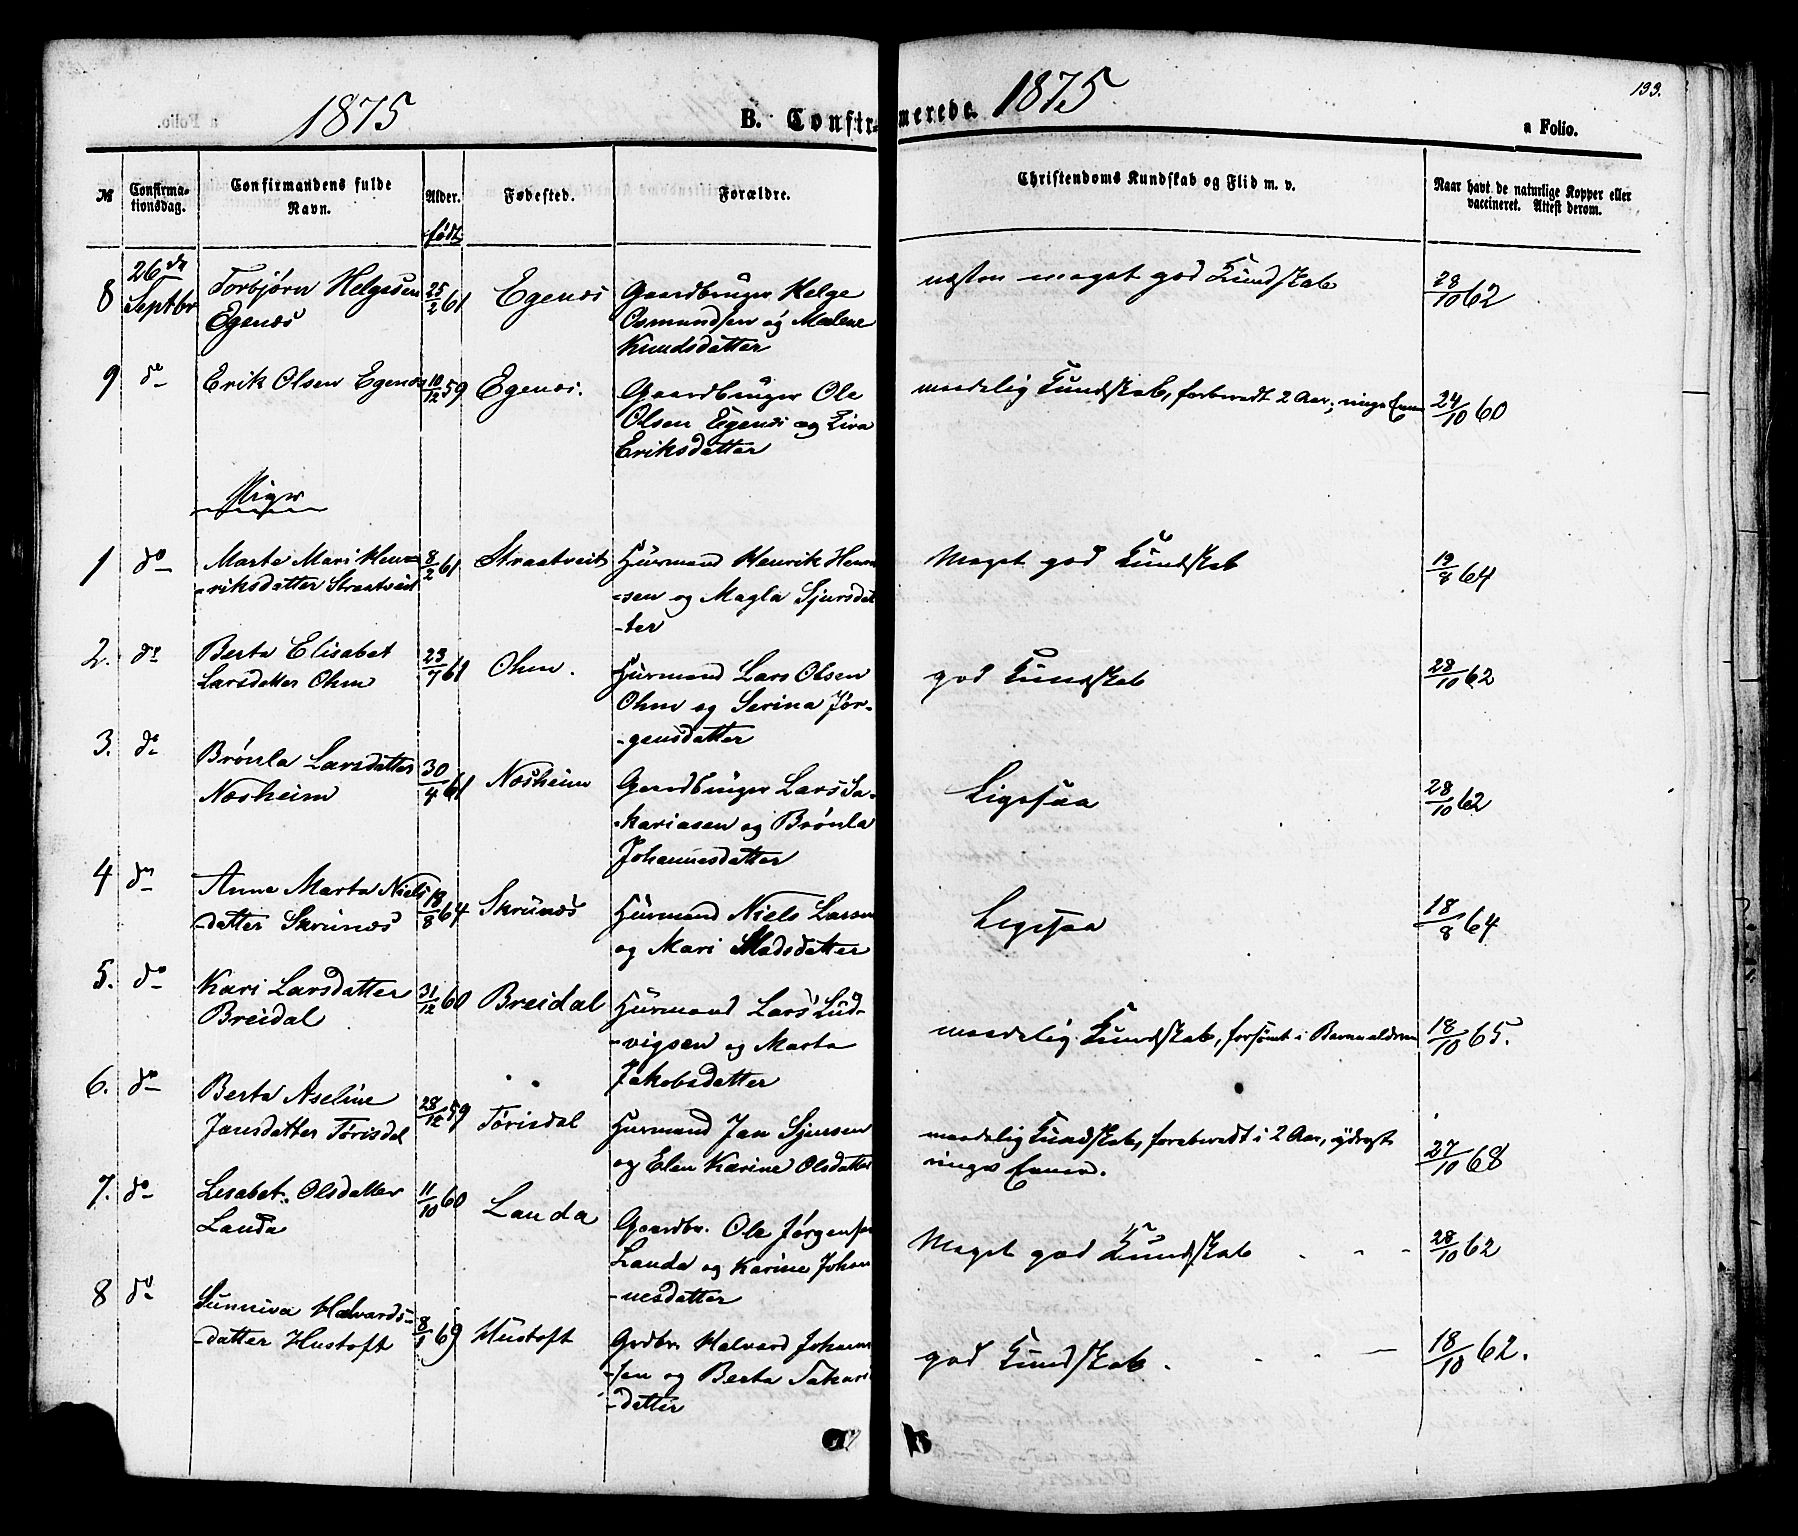 1875
B. Confir-
merede.
1875.
193.
a Folio.
№
Confirma-
tionsdag.
Confirmandens fulde
Navn.
Alder.
født
Fødested.
Forældre.
Christendoms Kundskab og Flid m. v.
Naar havt de naturlige Kopper eller
vaccineret. Attest derom.
8
26de
Septbr
Torbjørn Helgesen
Egenæs
25/2 61
Egenæs
Gaardbruger Helge
Osmundsen og Malene
Knudsdatter
næsten meget god Kundskab
28/10 62
9
do
Erik Olsen Egenæs
10/12 59
Egenæs.
Gaardbruger Ole
Olsen Egenæs og Siva
Eriksdatter
maadelig Kundskab, forberedt 2 Aar; ringe Evner
24/10 60
Piger
1
do
Marta Mari Hen-
-riksdatter Straatveit
8/2 61
Straatveit
Huusmand Henrik Hen-
-sen og Magla Sjursdat
-ter
Meget god Kundskab
19/8 64
2.
do
Berta Elisabet
Larsdatter Ohm
23/7 61
Ohm.
Huusmand Lars Olsen
Ohm og Serina Jør-
-gensdatter
god Kundskab
28/10 62
3.
do
Brønla Larsdatter
Næsheim
30/4 61
Næsheim
Gaardbruger Lars Sa-
-kariasen og Brønla
Johannesdatter
Ligesaa
28/10 62
4
do
Anne Marta Niels
-datter Skrunæs
18/8 64
Skrunæs
Huusmand Niels Larsen
og Mari Madsdatter
Ligesaa
18/8 64
5.
do
Kari Larsdatter
Breidal
31/12 60
Breidal
Huusmand Lars Lud-
-vigsen og Marta
Jakobsdatter
maadelig Kundskab, forsømt i Barnealderen
18/10 65.
6.
do
Berta Aseline
Jansdatter Tørisdal
28/12 59
Tørisdal
Huusmand Jan Sjursen
og Elen Karine Olsdatter
maadelig Kundskab, foreberedt i 2 Aar, yderst
ringe Evner.
27/10 68
7.
do
Lisabet Olsdatter
Landa
11/10 60
Landa
Gaardbr. Ole Jørgensen
Landa og Karine Johan
-nesdatter
Meget god Kundskab
28/10 62
8
do
Sunniva Halvards-
-datter Hustoft
8/1 69
Hustoft
Grdbr. Halvard Johann
-sen og Berta Sakari
-datter
god Kundskab.
18/10 62.